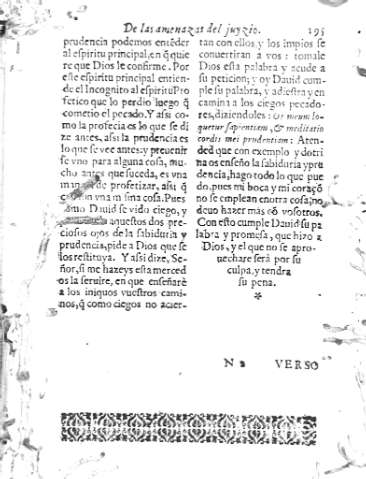 De las amenazas del juyzio. 195
prudencia podemos entẽder
al espiritu principal, en q̃ quie
re que Dios le confirme. Por
este espiritu principal entien-
de el Incognito al espiritu Pro
fetico que lo perdio luego q̃
cometio el pecado. Y assi co-
mo la profecia es lo que se di
ze antes, assi la prudencia es
lo que se vee antes: y preuenir
se vno para alguna cosa, mu-
cho antes que suceda, es vna
de profetizar, assi q̃
vna m sma cosa. Pues
Dauid se vido ciego, y
aquestos dos pre-
ciosos ojos de la sabiduria y
prudencia, pide a Dios que se
los restituya. Y assi dize, Se-
ñor, si me hazeys esta merced
os la seruire, en que enseñarè
a los iniquos vuestros cami-
nos, q̃ como ciegos no acier-
tan con ellos, y los impios se
conuertiran a vos: tomale
Dios esta palabra y acude a
su peticion; y oy Dauid cum-
ple su palabra, y adiestra y en
camina a los ciegos pecado-
res, diziendoles: os meum lo-
quetur sapientiam, & meditatio
cordis mei prudentiam: Aten-
ded que con exemplo y dotri
na os enseño la sabiduria y pru
dencia, hago todo lo que pue
do, pues mi boca y mi coraçõ
no se emplean en otra cosa, no
deuo hazer mas cõ vosotros.
Con esto cumple Dauid su pa
labra y promesa, que hizo a
Dios, y el que no se apro-
uechare serà por su
culpa, y tendra
su pena.
*
N 2 VERSO